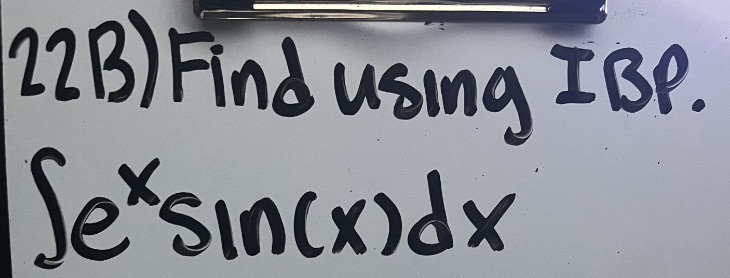 22B) Find using IBP.
∫e^x sin(x)dx